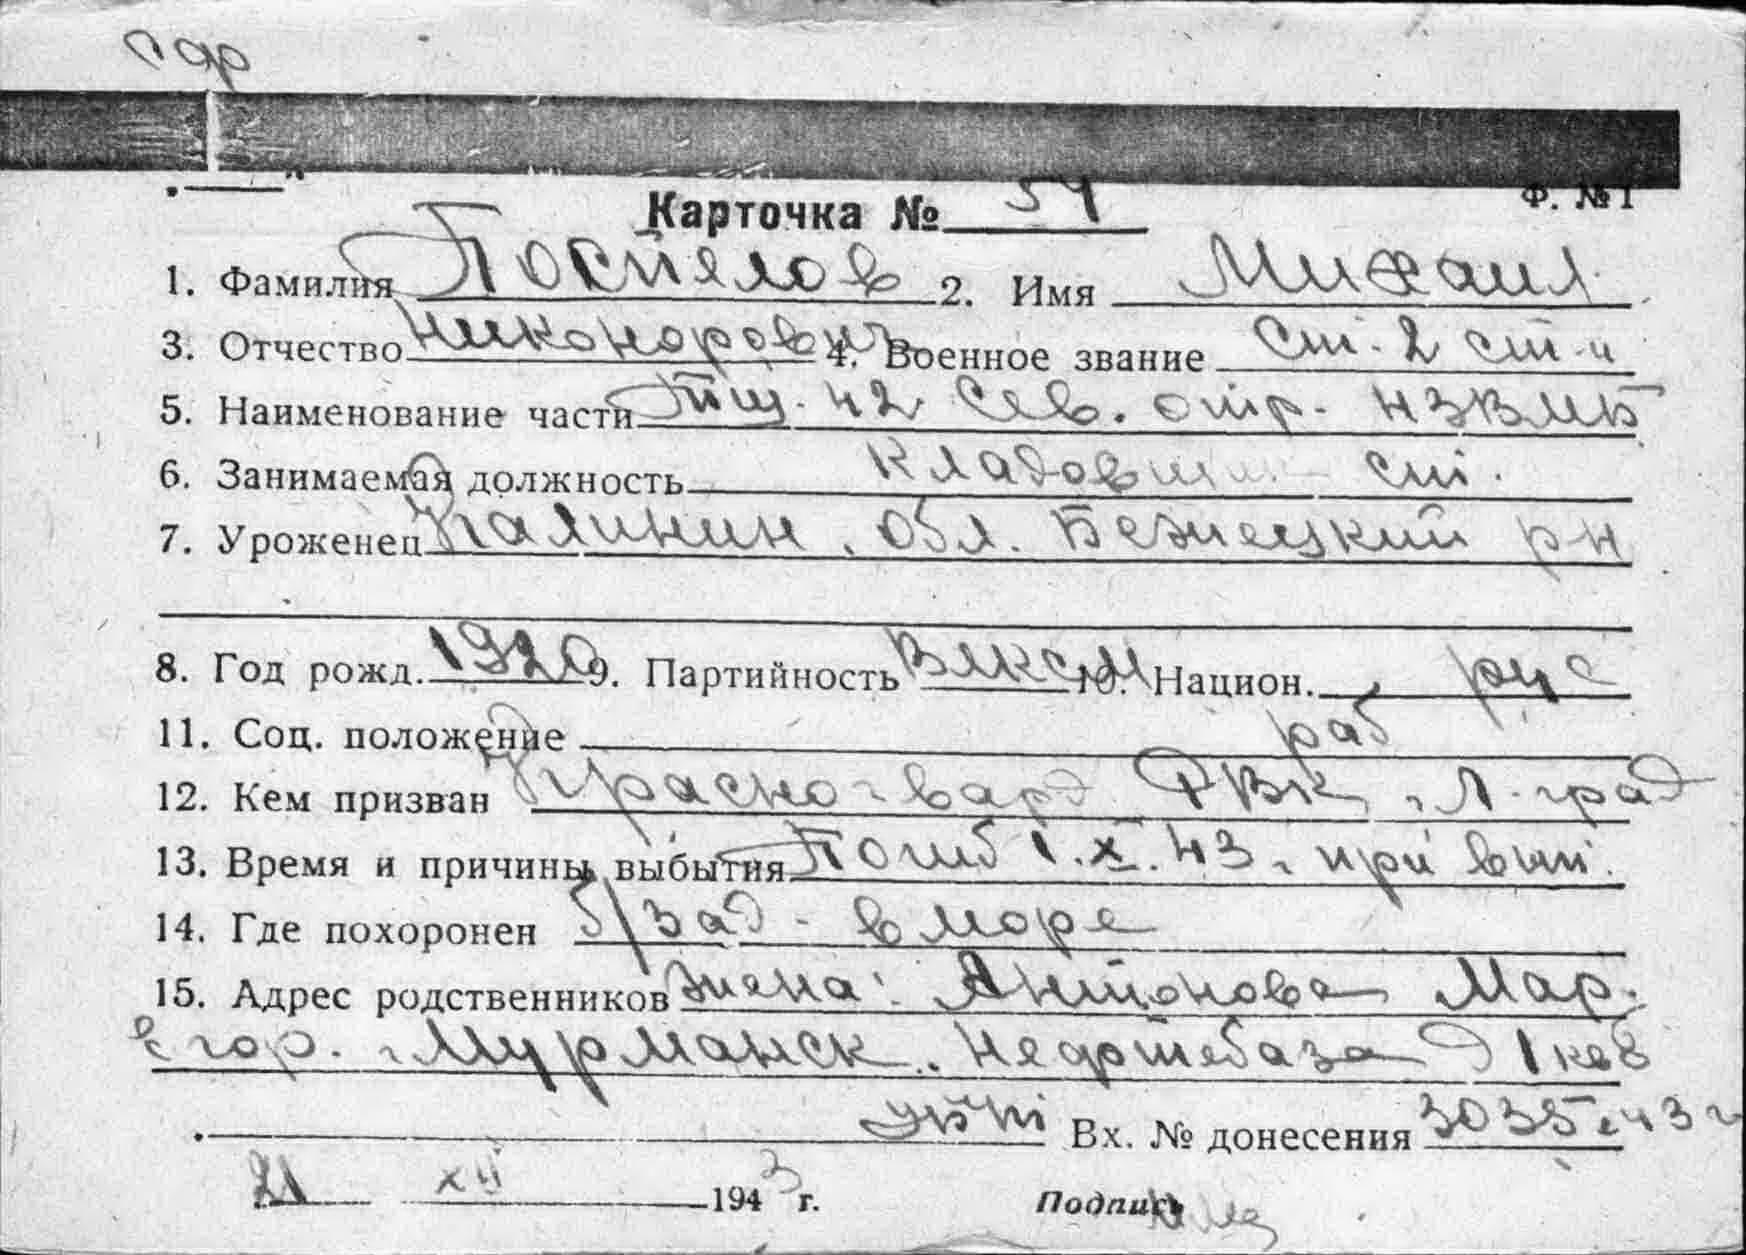 Ф. №1
Карточка № 54
1. Фамилия Поспелов 2. Имя Михаил
3. Отчество Никонорович 4. Военное звание Ст. 2 ст-и
5. Наименование части Тщ. 42 Сев. отр. НЗВМБ
6. Занимаемая должность кладовщик ст.
7. Уроженец Калинин. обл. Бежецкий р-н
8. Год рожд. 1920 9. Партийность ВЛКСМ 10. Национ. рус
11. Соц. положение раб
12. Кем призван Красногвард РВК, Л. град
13. Время и причины выбытия Погиб 1.X.43 г. при вып.
14. Где похоронен б/зад - в море
15. Адрес родственников жена: Антонова Мар.
Егор. г. Мурманск. Нефтебаза д 1 кв 8
Вх. № донесения 3035 43 г
21 XII 1943 г. Подпись